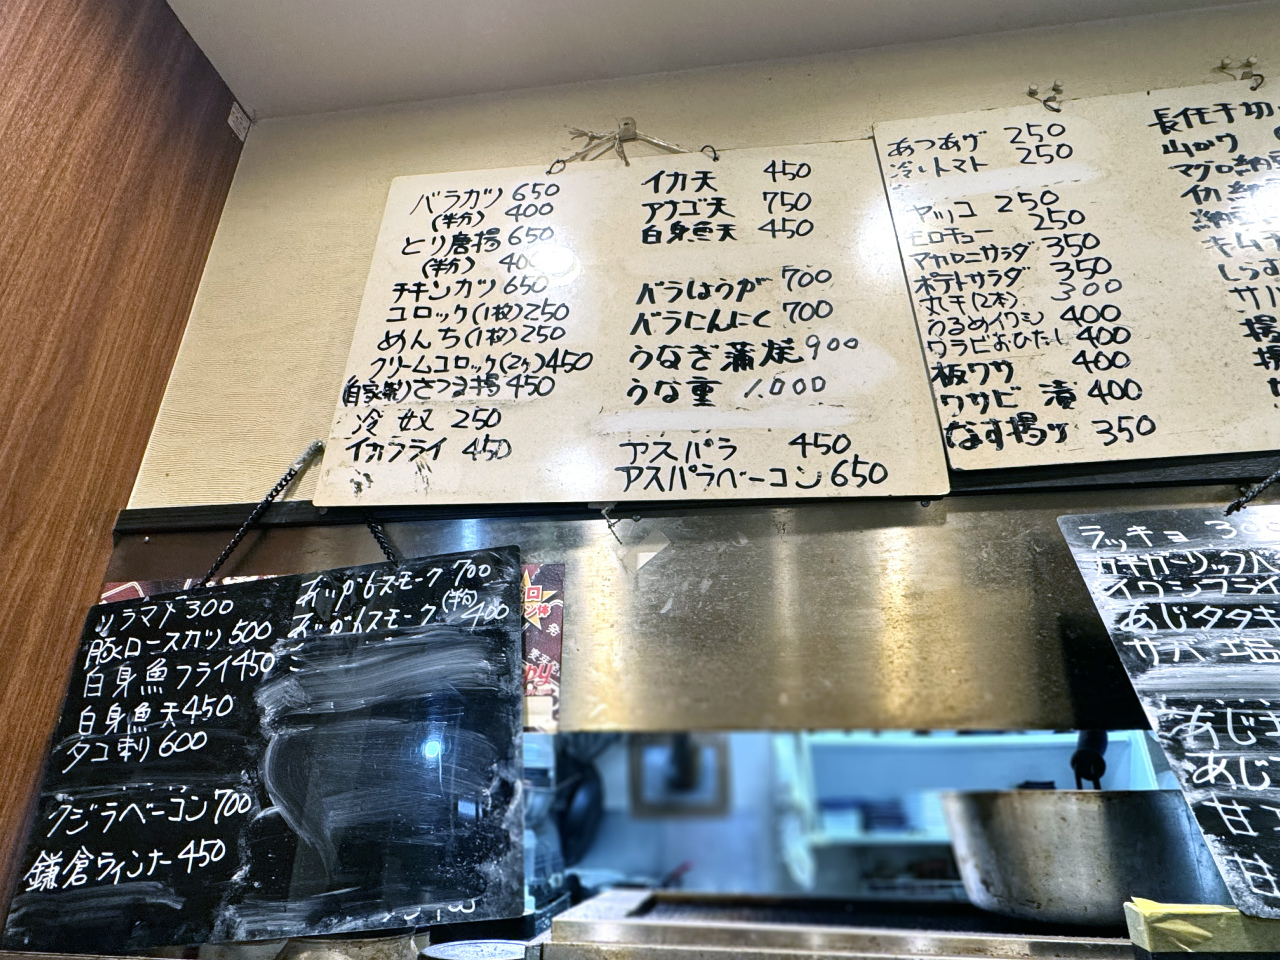 バラカツ 650
(半分) 400
とり唐揚 650
(半分) 400
チキンカツ 650
コロッケ(1枚) 250
めんち(1枚) 250
クリームコロッケ(2ヶ) 450
(自家製)さつま揚 450
冷奴 250
イカフライ 450
イカ天 450
アナゴ天 750
白身魚天 450
バラしょうが 700
バラにんにく 700
うなぎ蒲焼 900
うな重 1.000
アスパラ 450
アスパラベーコン 650
あつあげ 250
冷しトマト 250
ヤッコ 250
モロキュー 250
マカロニサラダ 350
ポテトサラダ 350
丸干(2本) 300
うるめイワシ 400
ワラビおひたし 400
板ワサ 400
ワサビ漬 400
なす揚ゲ 350
長芋千切
山かけ
マグロ納豆
イカ納
納豆
キムチ
しらす
サバ
揚
揚
ソラマメ 300
豚ロースカツ 500
白身魚フライ 450
白身魚天 450
タコ刺 600
クジラベーコン 700
鎌倉ウィンナー 450
スモーク 700
スモーク(半分) 400
ラッキョ
カキガーリックバ
イワシフライ
あじタタキ
サバ塩
あじ
あじ
甘
甘